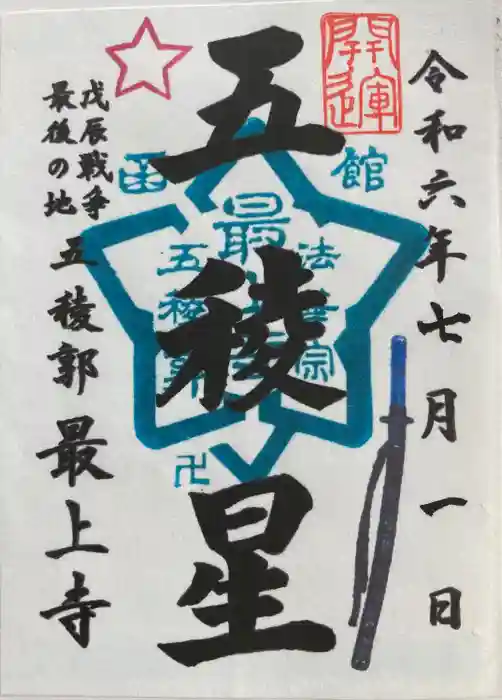 令和六年七月一日
開運
五稜星
函館
法華宗
最上寺
五稜郭
卍
戊辰戦争
最後の地
五稜郭 最上寺